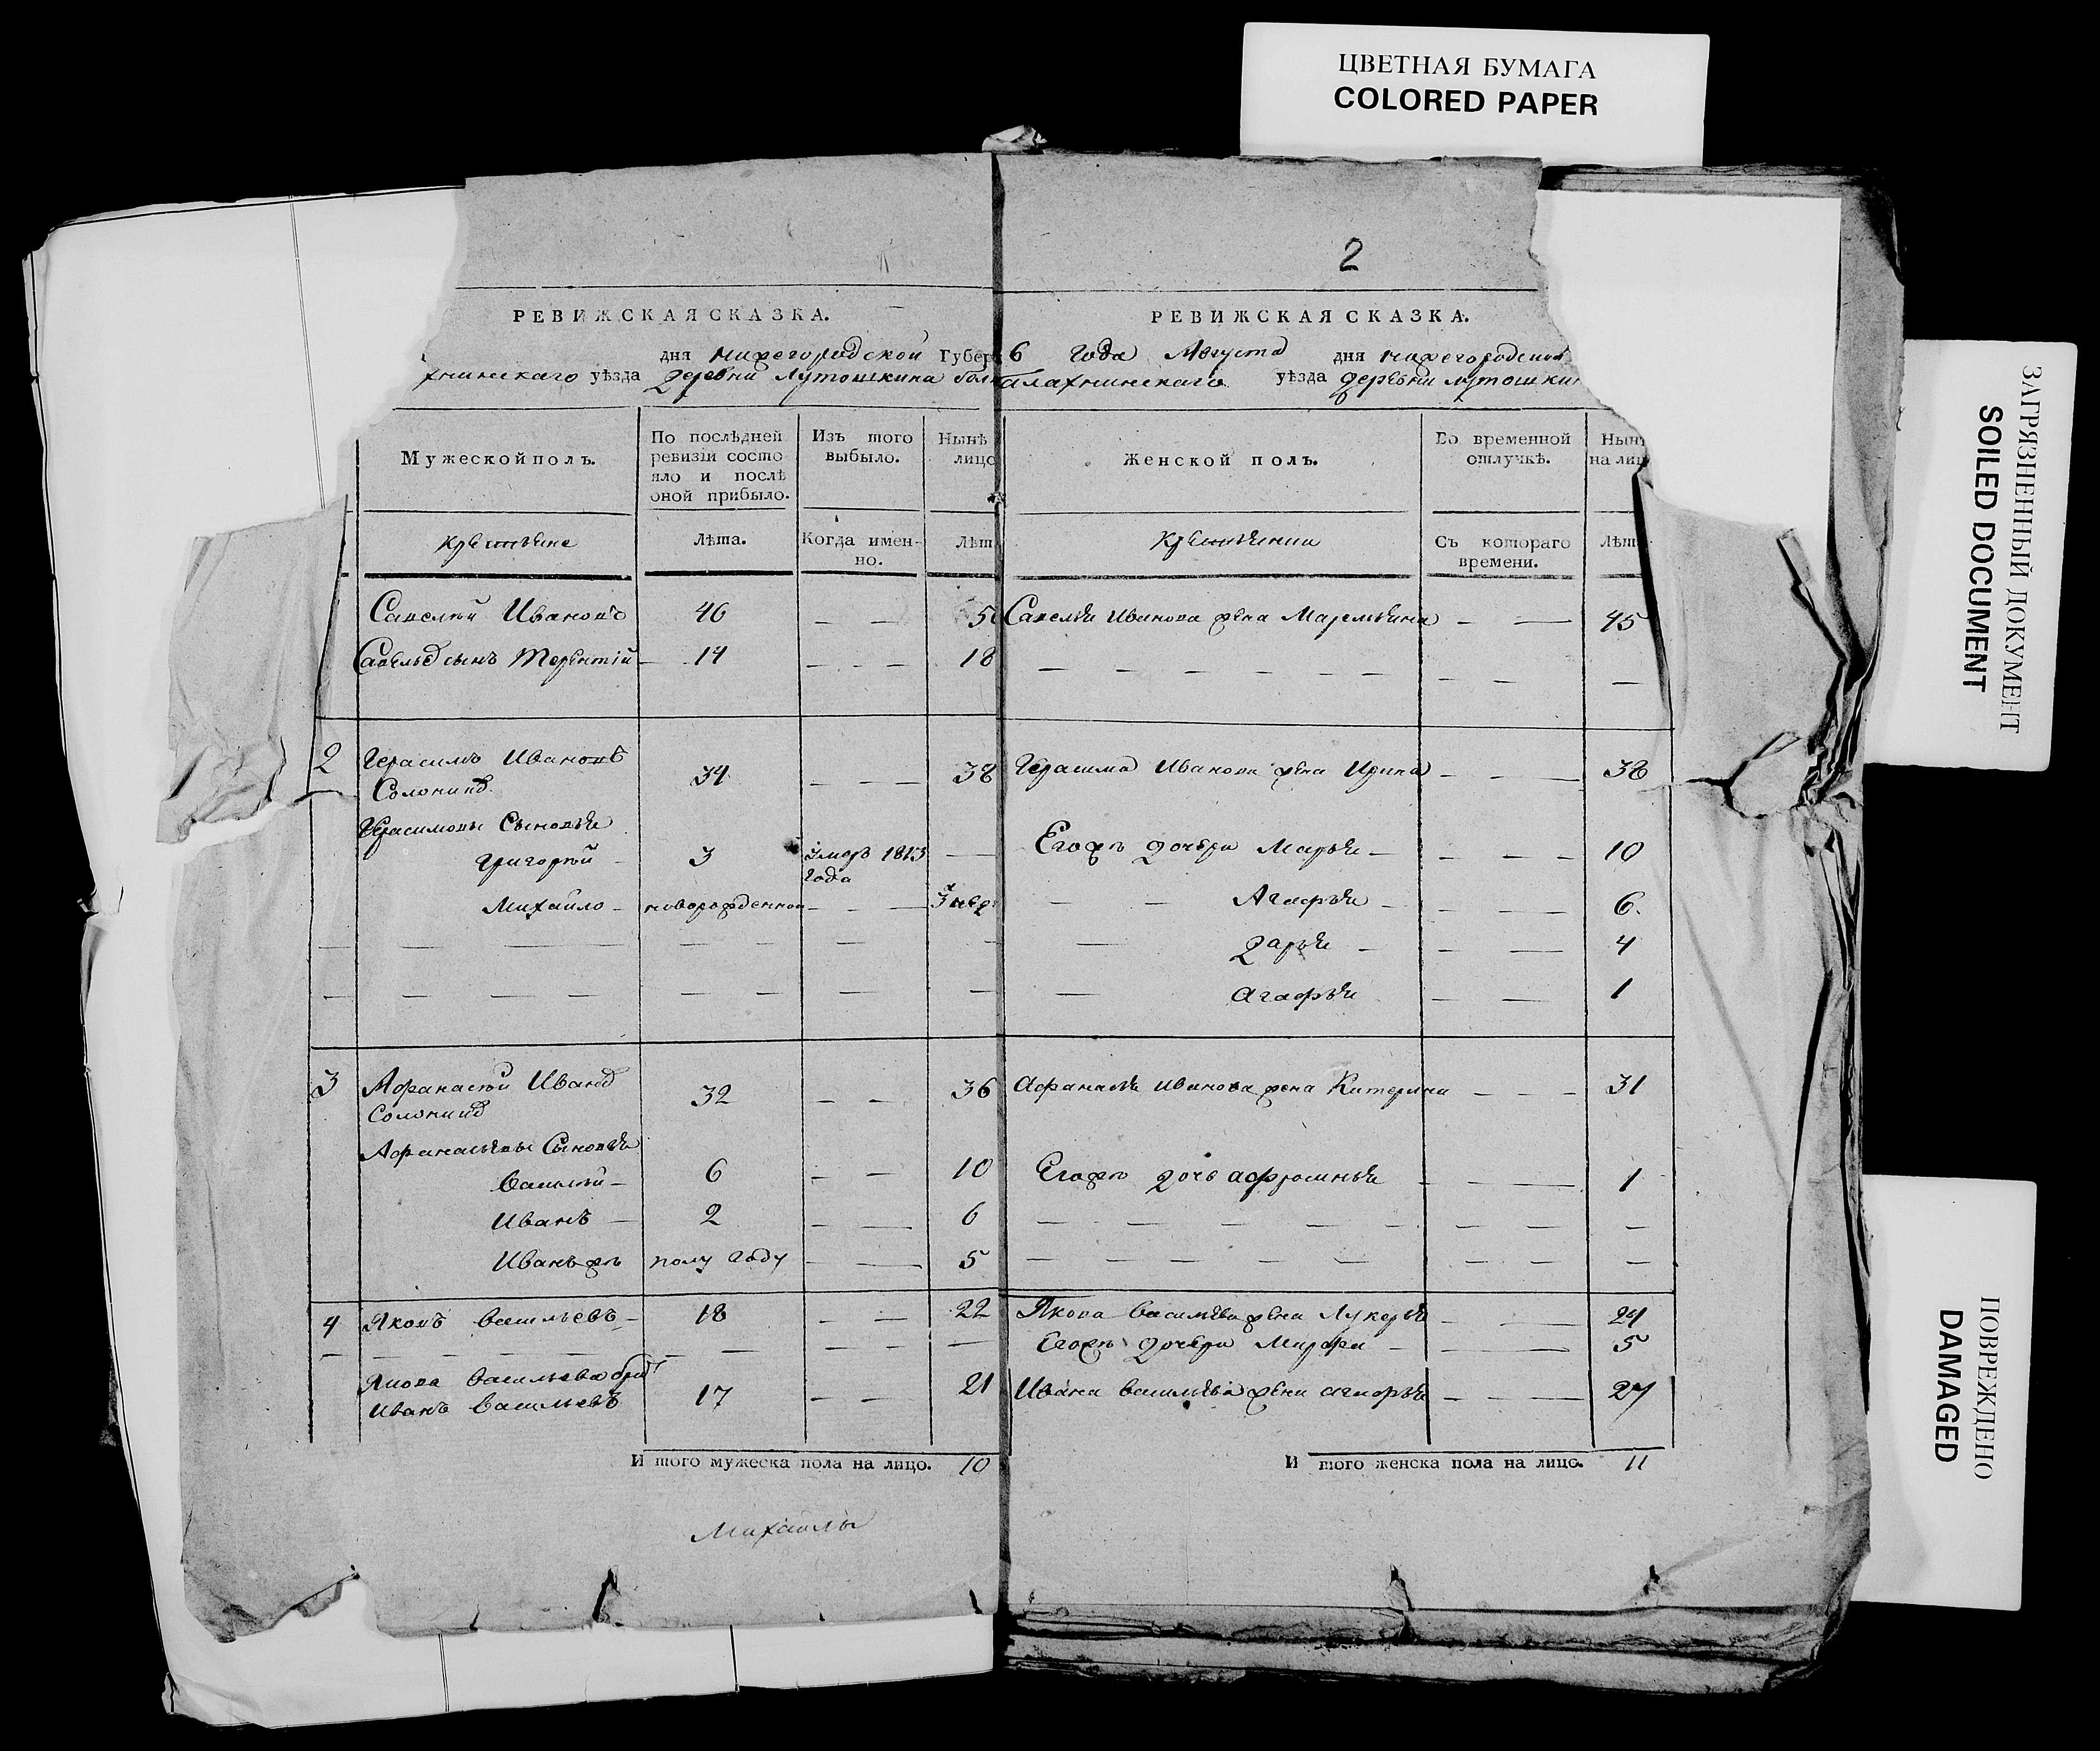 ЦВЕТНАЯ БУМАГА
COLORED PAPER
2
РЕВИЖСКАЯ СКАЗКА.
дня нижегородской Губер
хнинскаго уѣзда деревни Лутошкина
Мужеской полъ.
По послѣдней ревизіи состояло и послѣ оной прибыло.
Изъ того выбыло.
Нынѣ лицо
крестьяне
Лѣта.
Когда именно.
Лѣт
Савелѣй Ивановъ 46 — — 5
сынъ Терентій — 14 — — — 18
2 Герасимъ Ивановъ 34 — — — 38
Герасимовы Сыновья
Григорѣй — 3 1813 года —
Михайло — новорожденной — — —
3 Афанасѣй 32 — — 36
Сыновья
Василѣй — 6 — — 10
Иванъ — 2 — — 6
Иванъ жъ полу году — — 5
4 Яковъ Васильевъ — 18 — — 22
Якова Васильева братъ
Иванъ Васильевъ 17 — — 21
И того мужеска пола на лицо. 10
Михайлы
РЕВИЖСКАЯ СКАЗКА.
6 года Августа дня нижегородской
балахнинскаго уѣзда деревни лутошкин
Женской полъ.
Во временной отлучкѣ.
Нынѣ на лиц
Съ котораго времени.
Лѣт
Савелья Иванова жена — — 45
Герасима Иванова жена Ирина — — — 38
Егожъ дочери Марья — — — — 10
— — Агафья — — — — 6.
— — Дарья — — — 4
— Агафья — — 1
Афанасья Иванова жена Катерина — — — 31
Егожъ дочь афросинья — — — 1
Якова Васильева жена Лукерья — — 24
Егожъ дочери — — — 5
Ивана Васильева жена — — — 27
И того женска пола на лицо. 11
ЗАГРЯЗНЕННЫЙ ДОКУМЕНТ
SOILED DOCUMENT
ПОВРЕЖДЕНО
DAMAGED